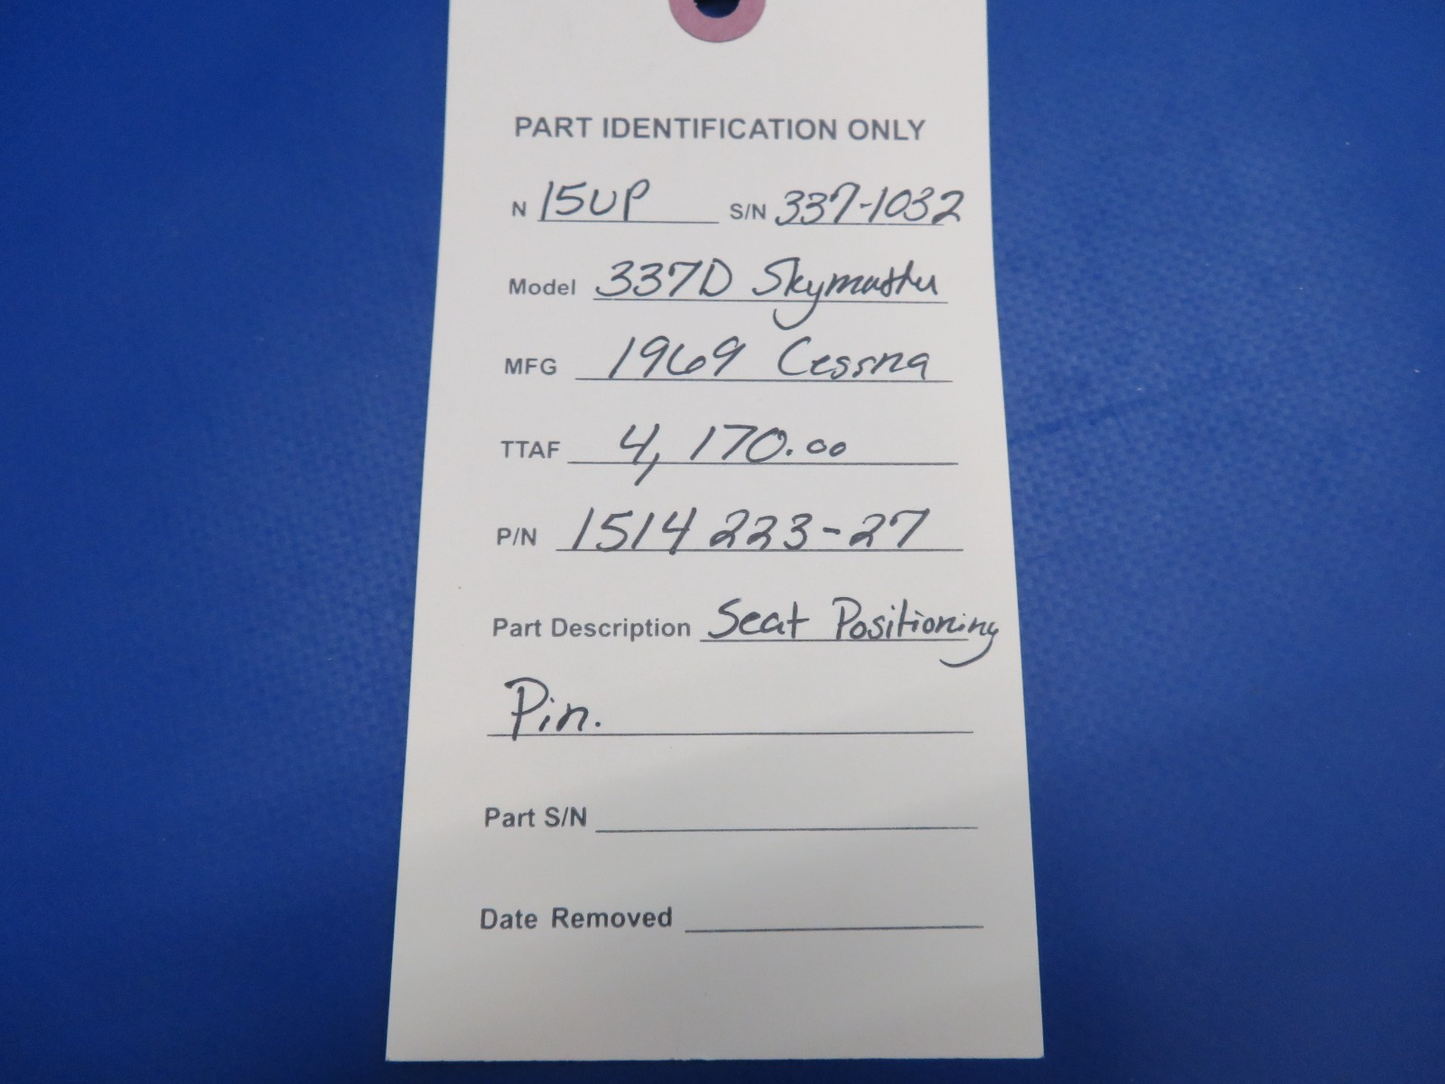 PART IDENTIFICATION ONLY
N 15UP S/N 337-1032
Model 337D Skymaster
MFG 1969 Cessna
TTAF 4,170.00
P/N 1514223-27
Part Description Seat Positioning
Pin.
Part S/N
Date Removed